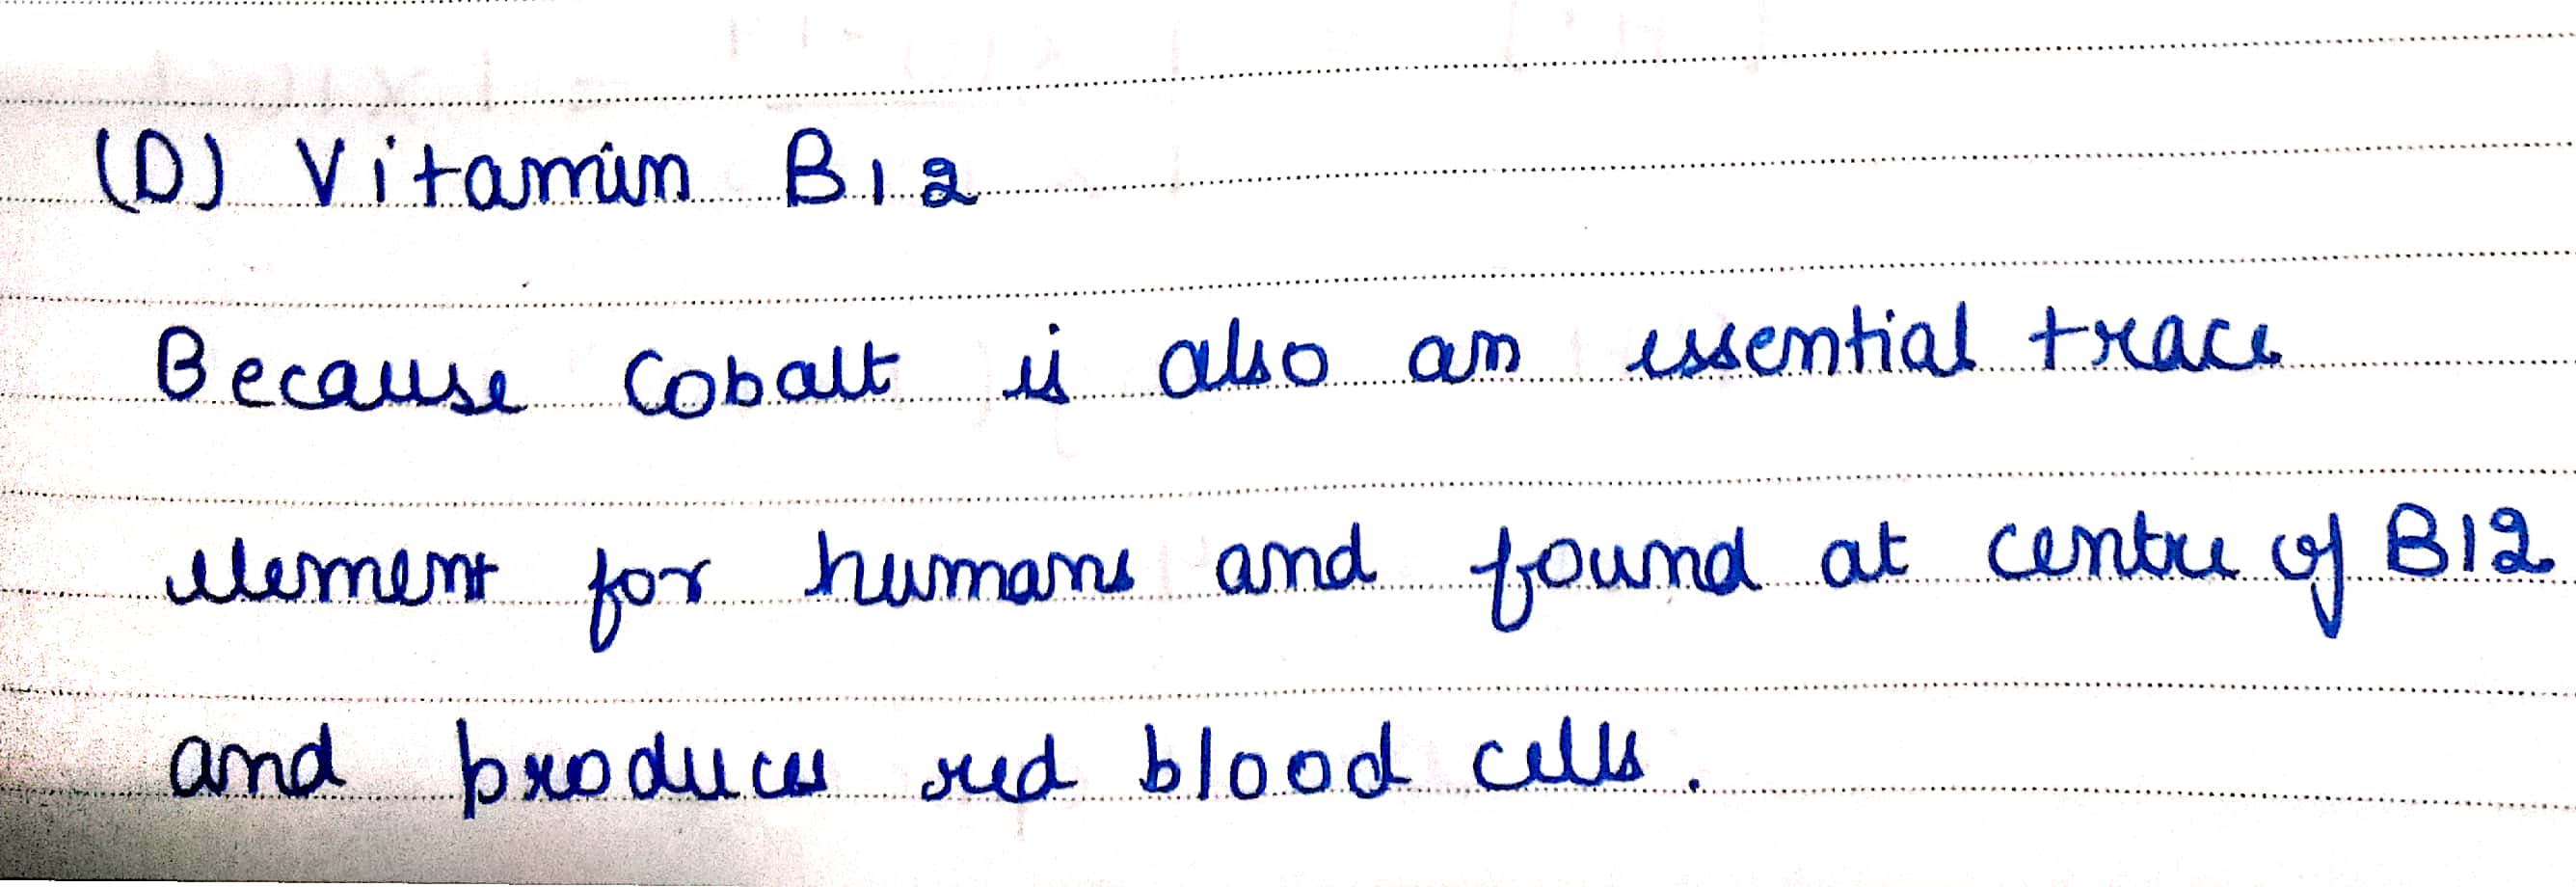 (D) Vitamin B12
Because Cobalt is also an essential trace
element for humans and found at centre of B12
and produces red blood cells.